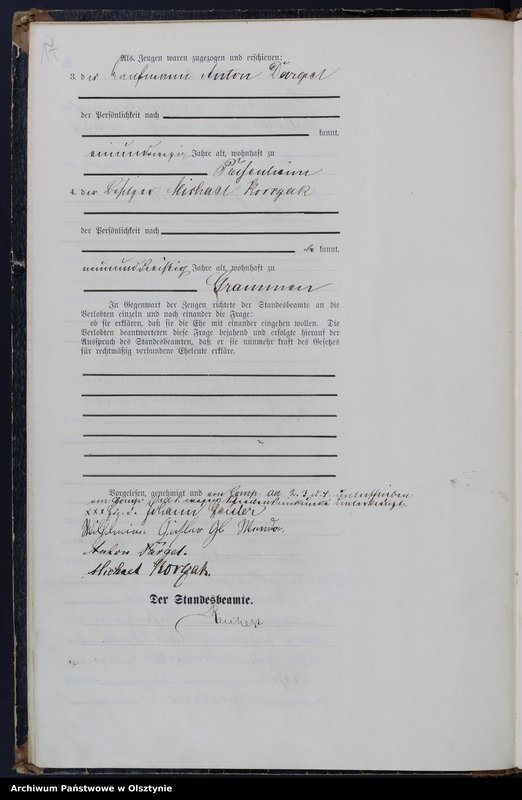 17
Als Zeugen waren zugezogen und erschienen:
3. der Kaufmann Anton Dargel
der Persönlichkeit nach
kannt,
einundzwanzig Jahre alt, wohnhaft zu
4. der Besitzer Michael Korrgak
der Persönlichkeit nach
be kannt,
neununddreißig Jahre alt, wohnhaft zu
Grammen
In Gegenwart der Zeugen richtete der Standesbeamte an die
Verlobten einzeln und nach einander die Frage:
ob sie erklären, daß sie die Ehe mit einander eingehen wollen. Die
Verlobten beantworteten diese Frage bejahend und erfolgte hierauf der
Ausspruch des Standesbeamten, daß er sie nunmehr kraft des Gesetzes
für rechtmäßig verbundene Eheleute erkläre.
Vorgelesen, genehmigt und von Comp. ad 2. 3. u. 4. unterschrieben
von Comp. ad 1. wegen Schreibensunkunde unterkreuzt
xxx Hz. d. Johann Geisler
Wilhelmine Geisler
Anton Dargel.
Michael Korgak.
Der Standesbeamte.
Archiwum Państwowe w Olsztynie